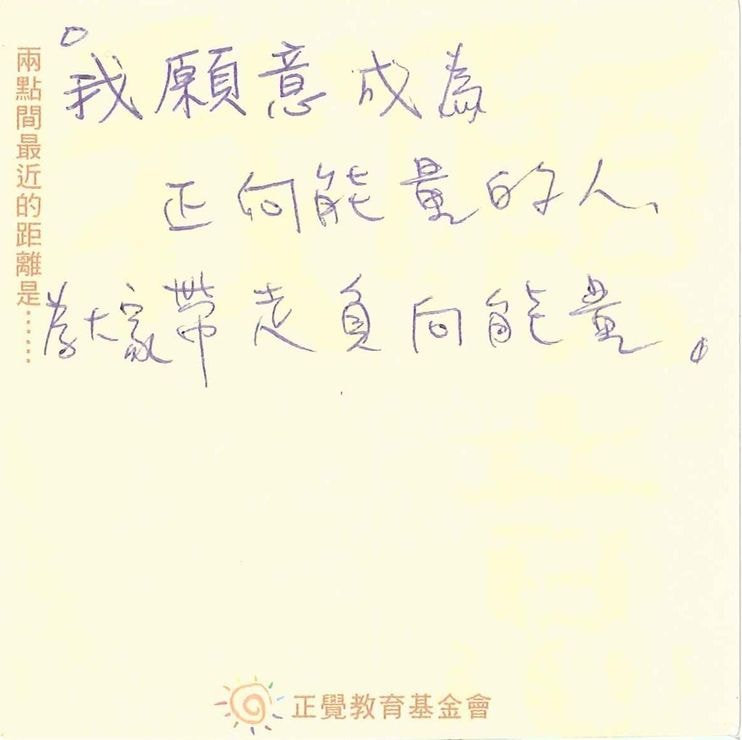 兩點間最近的距離是......
我願意成為
正向能量的人、
為大家帶走負向能量。
正覺教育基金會